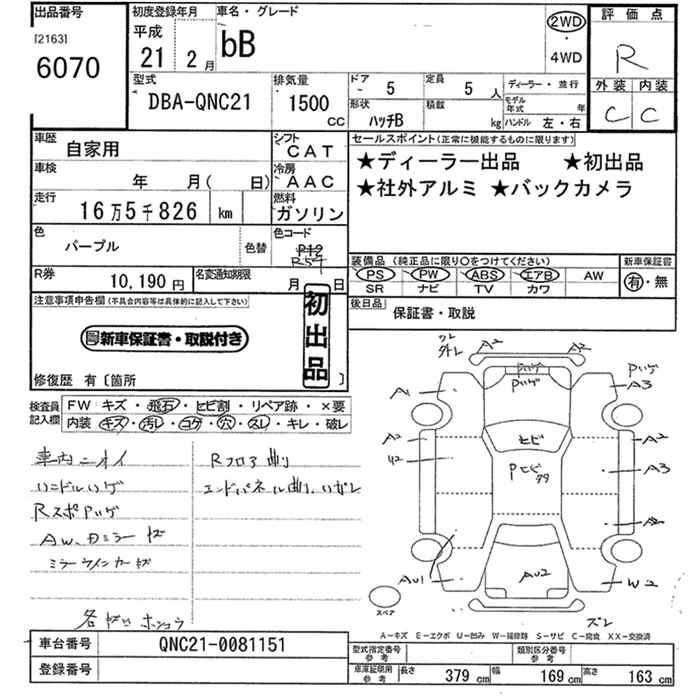 出品番号
[2163]
6070
初度登録年月
平成
21 2月
車名・グレード
bB
2WD
・
4WD
評価点
R
外装 内装
C C
型式
DBA-QNC21
排気量
1500
CC
ドア
5
定員
5人
ディーラー・並行
形状
ハッチB
積載
kg
モデル年式
年
ハンドル 左・右
車歴
自家用
シフト
CAT
車検
年 月( 日)
冷房
AAC
走行
16万5千826 km
燃料
ガソリン
色
パープル
色替
色コード
R54
R券
10,190円
名変通知期限
月 日
セールスポイント(正常に機能するものに限ります)
★ディーラー出品 ★初出品
★社外アルミ ★バックカメラ
装備品 (純正品に限り〇をつけてください)
PS PW ABS エアB AW
SR ナビ TV カワ
新車保証書
有・無
後日品
保証書・取説
注意事項申告欄(不具合内容等は具体的に記入して下さい)
新車保証書・取説付き
初出品
修復歴 有〔箇所 〕
検査員記入欄
FW キズ・飛石・ヒビ割・リペア跡・×要
内装 キズ・汚レ・コゲ・穴・スレ・キレ・破レ
車内ニオイ
ハンドルハゲ
RスポPハゲ
AW、ドアミラーキズ
ミラーウインカーキズ
Rフロア曲り
エンドパネル曲り、ハガレ
A2 A2
Pハゲ
Pハゲ
Pハゲ
A1
A3
A2
A2
ヒビ
A3
A2
AU1
AU2
W2
スペア
ズレ
A-キズ E-エクボ U-凹み W-補修跡 S-サビ C-腐食 XX-交換済
車台番号
QNC21-0081151
登録番号
型式指定番号
参考
類別区分番号
参考
車庫証明用
参考
長さ 379 cm 幅 169 cm 高さ 163 cm